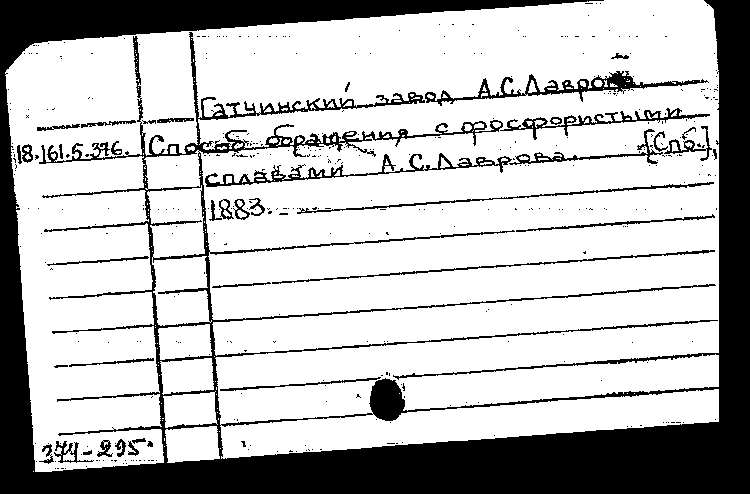 Гатчинский завод А.С.Лаврова.
18.161.5.376. Способ обращения с фосфористыми
сплавами А.С.Лаврова. [Спб.],
1883.
374-295